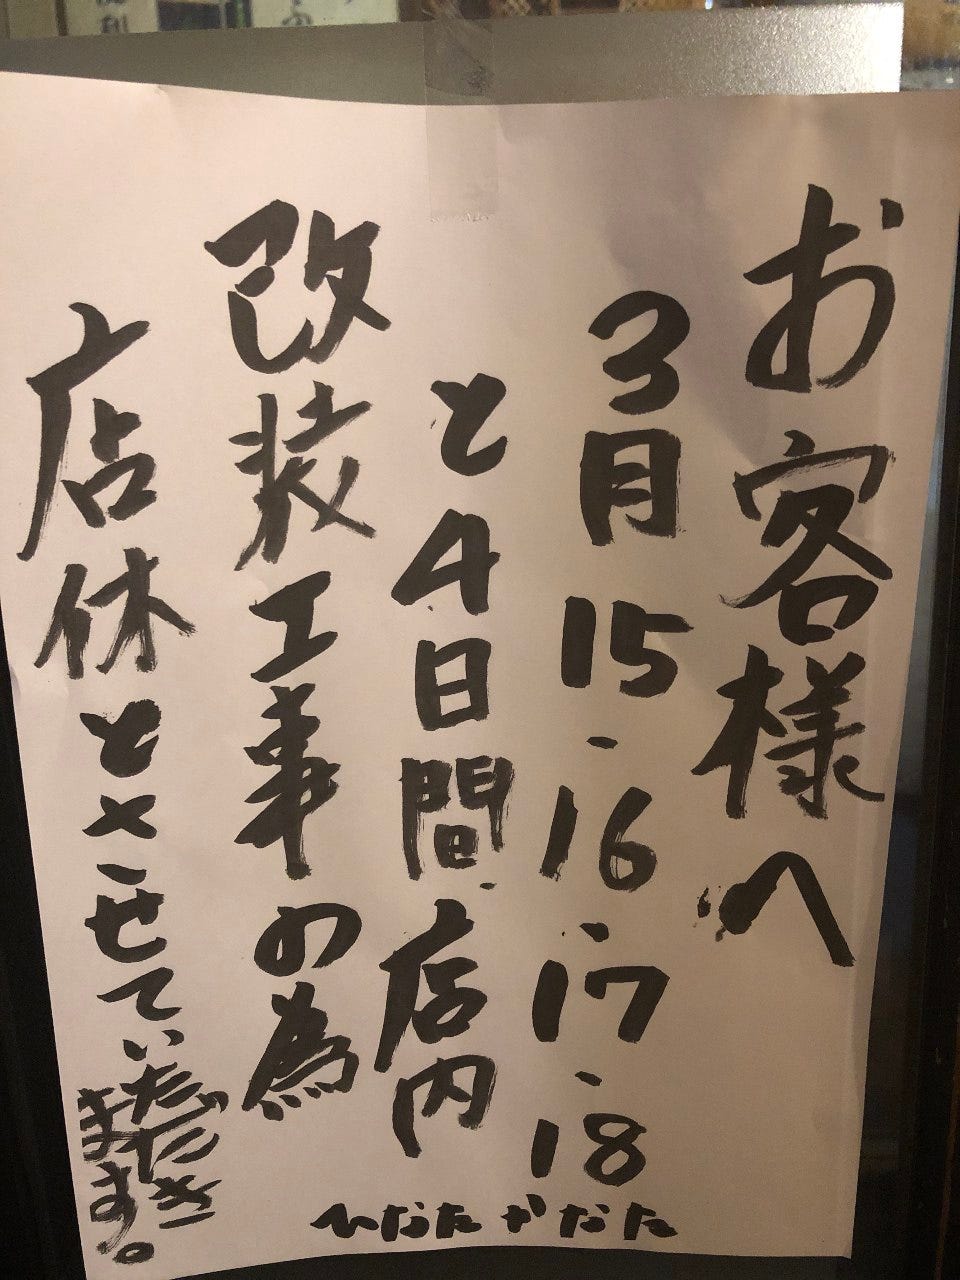 お客様へ
3月15-16-17-18
と4日間店内
改装工事の為
店休とさせていただき
ます。
ひなたかなた